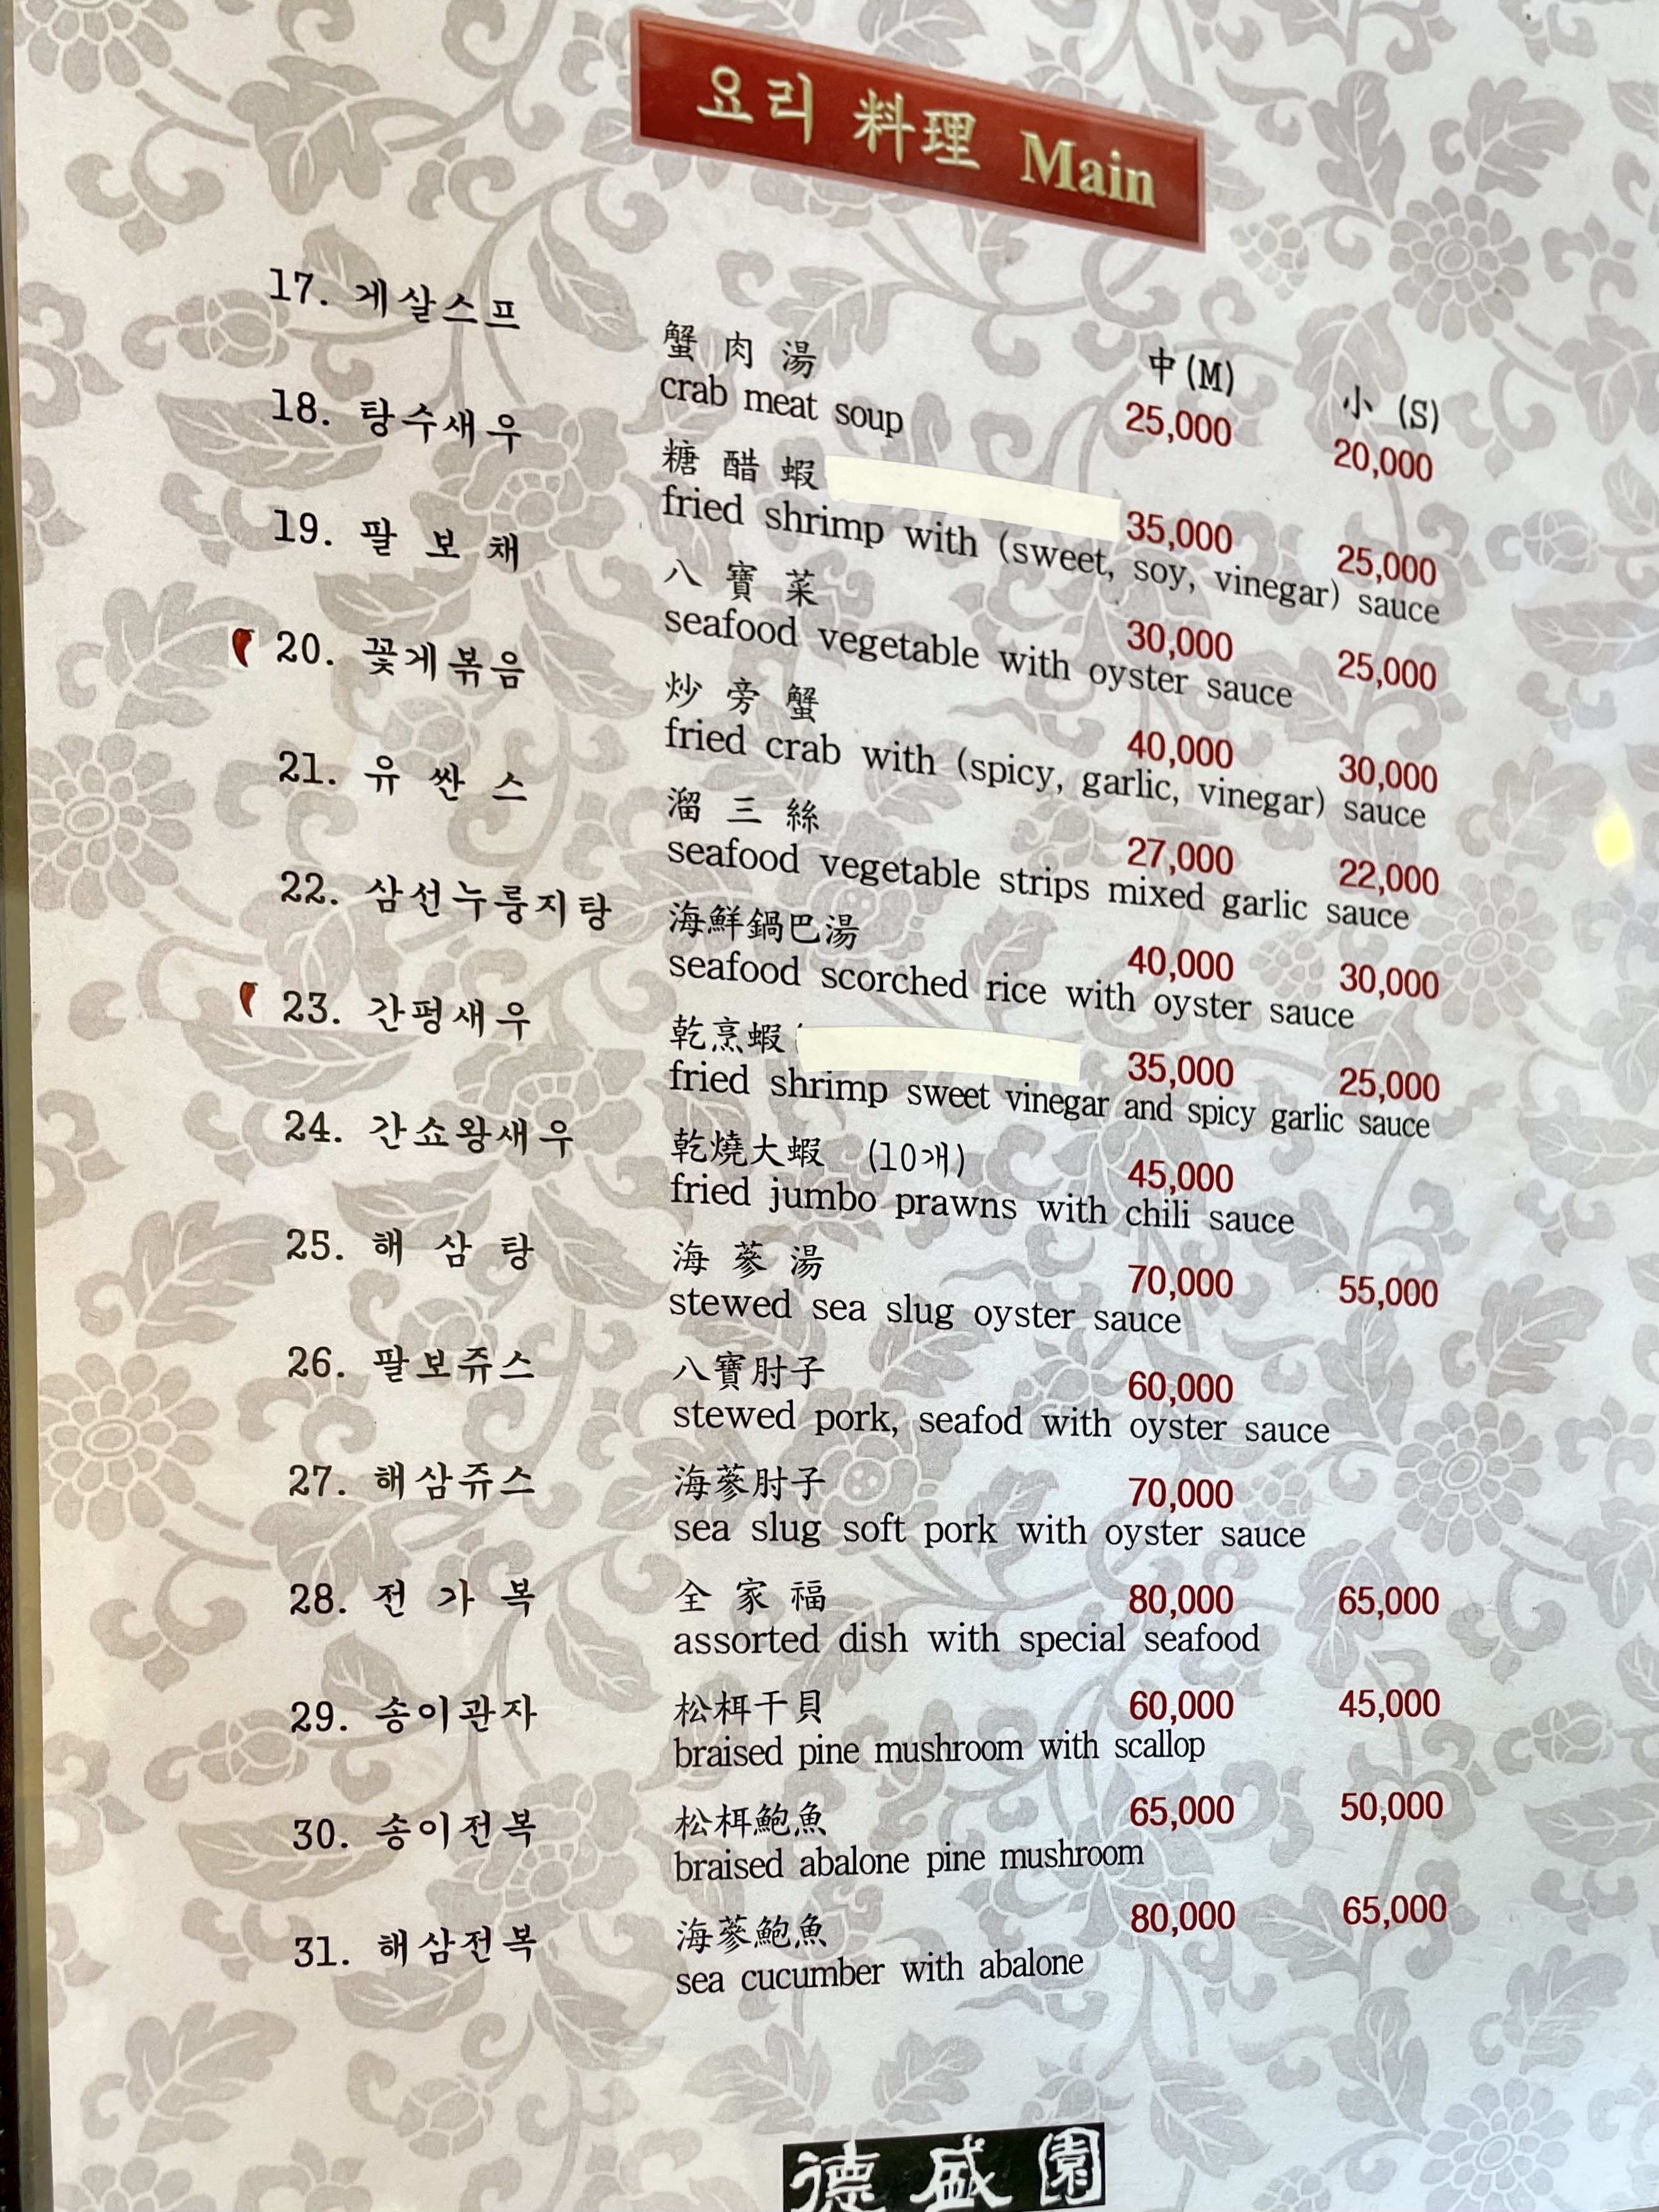 요리 料理 Main
中(M) 小(S)
17. 게살스프 蟹肉湯 25,000 20,000
crab meat soup
18. 탕수새우 糖醋蝦 35,000 25,000
fried shrimp with (sweet, soy, vinegar) sauce
19. 팔보채 八寶菜 30,000 25,000
seafood vegetable with oyster sauce
20. 꽃게볶음 炒旁蟹 40,000 30,000
fried crab with (spicy, garlic, vinegar) sauce
21. 유싼스 溜三絲 27,000 22,000
seafood vegetable strips mixed garlic sauce
22. 삼선누룽지탕 海鮮鍋巴湯 40,000 30,000
seafood scorched rice with oyster sauce
23. 간평새우 乾烹蝦 35,000 25,000
fried shrimp sweet vinegar and spicy garlic sauce
24. 간쇼왕새우 乾燒大蝦 (10개) 45,000
fried jumbo prawns with chili sauce
25. 해삼탕 海蔘湯 70,000 55,000
stewed sea slug oyster sauce
26. 팔보쥬스 八寶肘子 60,000
stewed pork, seafod with oyster sauce
27. 해삼쥬스 海蔘肘子 70,000
sea slug soft pork with oyster sauce
28. 전가복 全家福 80,000 65,000
assorted dish with special seafood
29. 송이관자 松栮干貝 60,000 45,000
braised pine mushroom with scallop
30. 송이전복 松栮鮑魚 65,000 50,000
braised abalone pine mushroom
31. 해삼전복 海蔘鮑魚 80,000 65,000
sea cucumber with abalone
德盛園